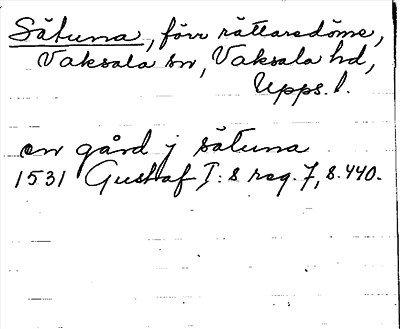 Sätuna, förr rättarsdöme,
Vaksala sn, Vaksala hd,
Upps. l.
en gård j sätuna
1531 Gustaf I:s reg. 7, s. 440.